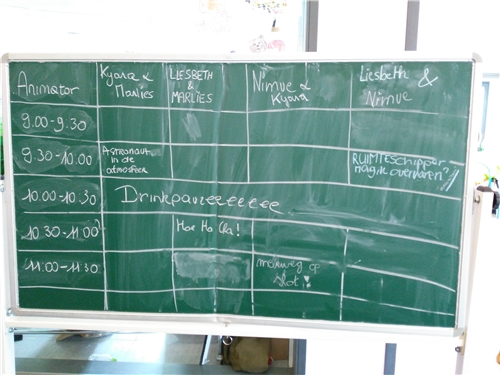 Animator
Kyara &
Marlies
LIESBETH
&
MARLIES
Nimue &
Kyara
Liesbeth &
Nimue
9.00-9.30
9.30-10.00
ASTRONAUT
in de
atmosfeer
RUIMTESCHIPPER
mag ik overvaren?
10.00-10.30
Drinkpauzeeeeeeee
10.30-11.00
Hoe Ha Cha!
11.00-11.30